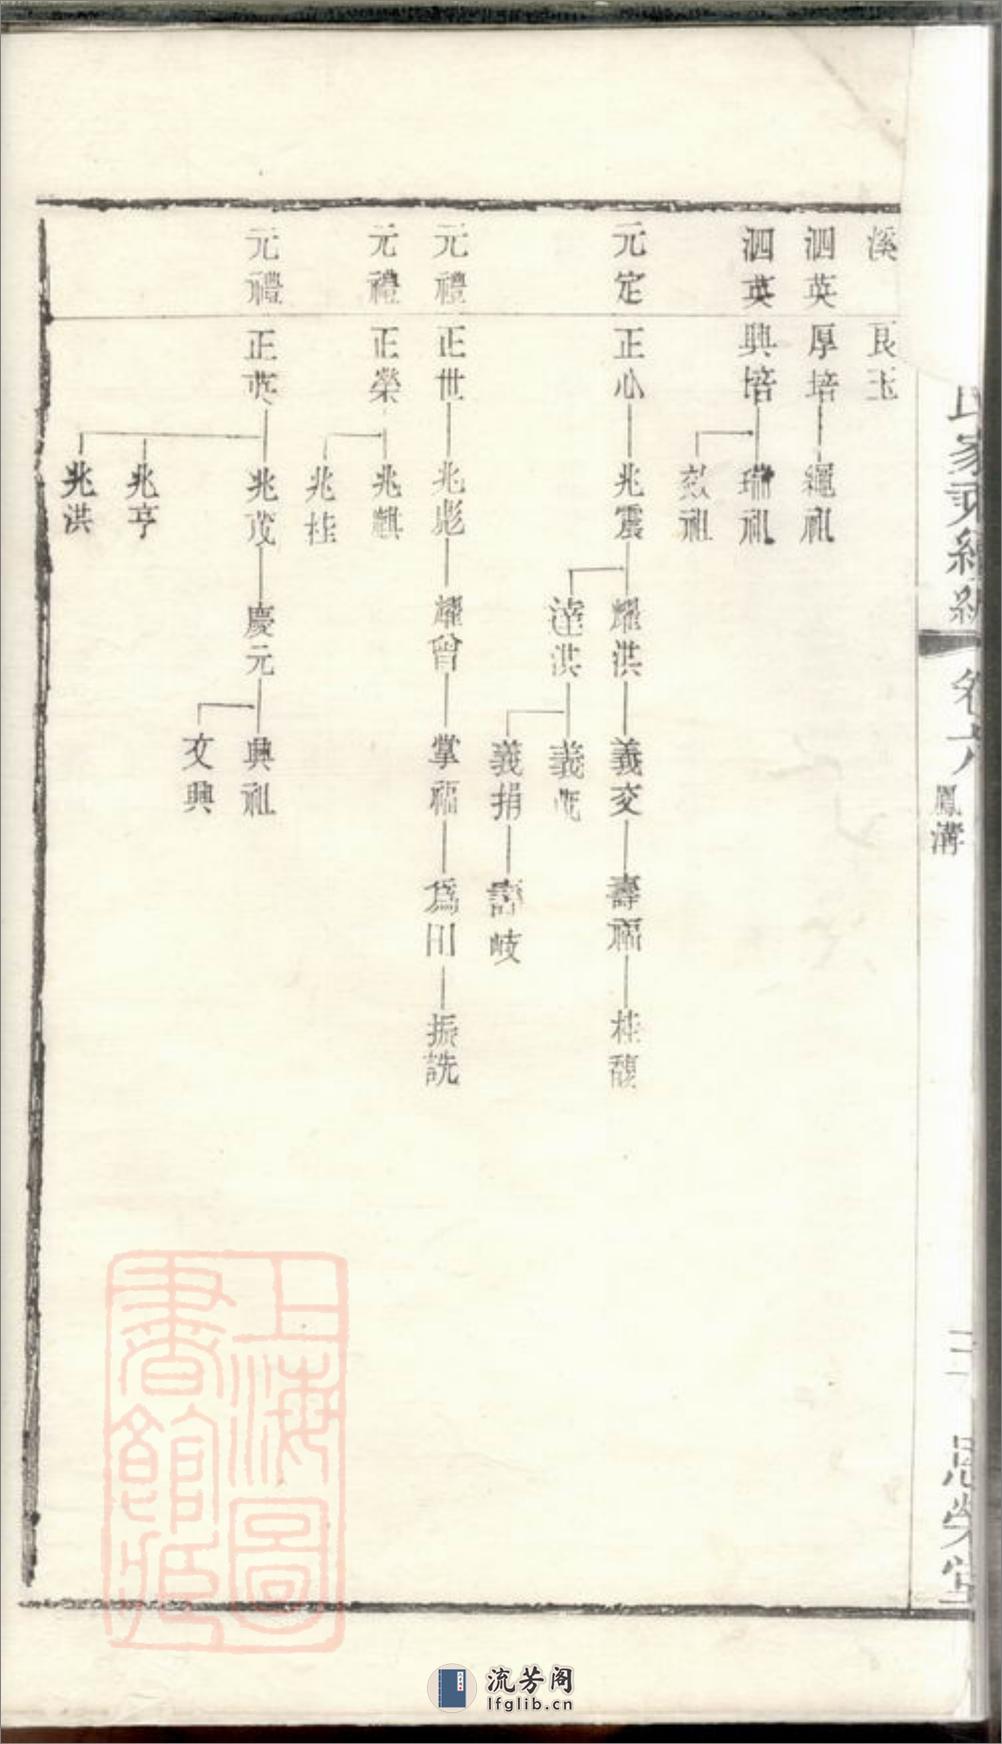 氏家乘續編
卷六
鳳溝
思榮堂
溪 艮玉
泗英 厚培 繩祖
泗英 興培 瑞祖
效祖
元定 正心 兆震 耀洪 義交 壽福 桂馥
達洪 義
義捐 壽岐
元禮 正世 兆彪 耀曾 掌福 為川 振詵
元禮 正榮 兆麒
兆桂
元禮 正英 兆茂 慶元 興祖
文興
兆亨
兆洪
上海圖
書館藏
流芳阁
lfglib.cn